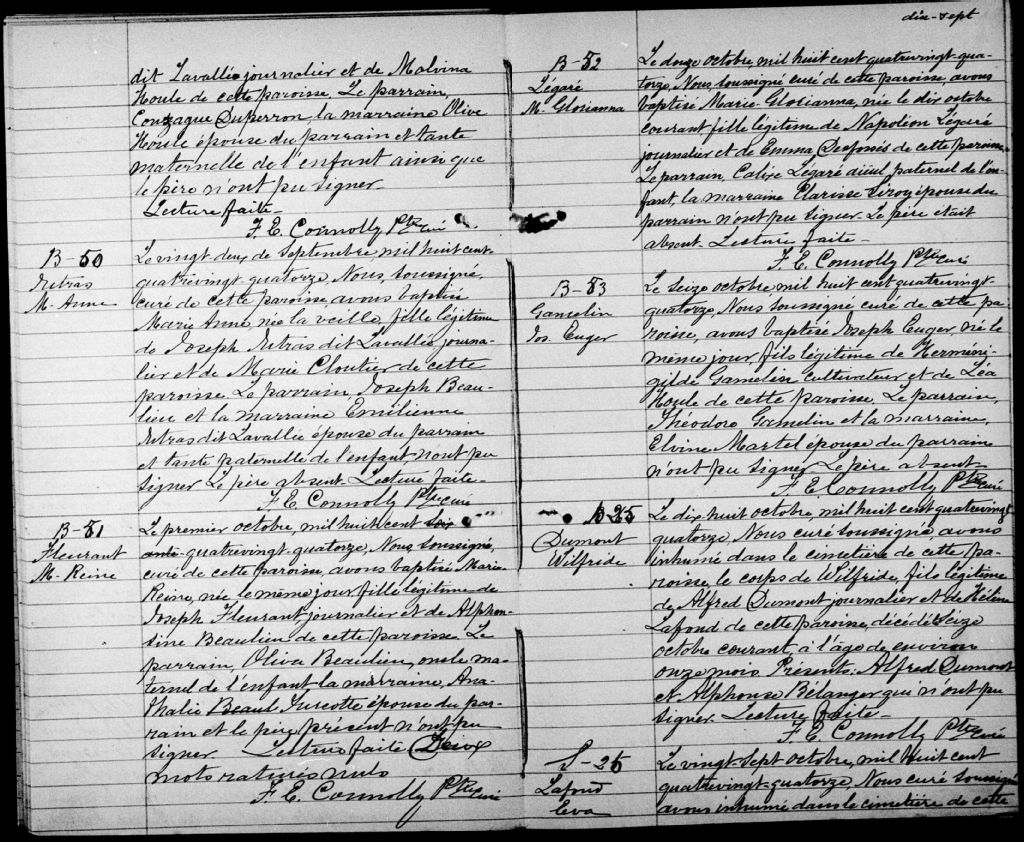 dit Lavallée journalier et de Malvina
Houle de cette paroisse. Le parrain,
Gonzague Duperron, la marraine Olive
Houle épouse du parrain et tante
maternelle de l'enfant ainsi que
le père n'ont pu signer_
Lecture faite_
F. E. Connolly Ptre curé
B-50
Jutras
M. Anne
Le vingt deux de septembre mil huit cent
quatrevingt-quatorze, Nous, soussigné,
curé de cette paroisse avons baptisé
Marie Anne, née la veille, fille légitime
de Joseph Jutras dit Lavallée journa-
lier et de Marie Cloutier de cette
paroisse. Le parrain, Joseph Beau-
lieu et la marraine Emilienne
Jutras dit Lavallée épouse du parrain
et tante paternelle de l'enfant, n'ont pu
signer Le père absent. Lecture faite_
F. E. Connolly Ptre curé
B-51
Fleurant
M-Reine
Le premier octobre, mil huit cent
quatrevingt-quatorze, Nous, soussigné,
curé de cette paroisse, avons baptisé Marie
Reine, née le même jour fille légitime de
Joseph Fleurant journalier et de Alphon-
sine Beaulieu de cette paroisse. Le
parrain, Oliva Beaulieu, oncle ma-
ternel de l'enfant la marraine, Ana-
thalie Beaul Turcotte épouse du par-
rain et le père présent n'ont pu
signer Lecture faite Deux
mots raturés nuls
F. E. Connolly Ptre curé
dix-sept
B-52
Légaré
M. Glorianna
Le douze octobre mil huit cent quatrevingt-qua-
torze, Nous, soussigné curé de cette paroisse, avons
baptisé Marie-Glorianna, née le dix octobre
courant fille légitime de Napoléon Légaré
journalier et de Emma Desfossés de cette paroisse
Le parrain, Calixe Légaré aïeul paternel de l'en-
fant, la marraine Clarisse Giroy épouse du
parrain n'ont pu signer. Le père était
absent Lecture faite_
F. E. Connolly Ptre curé
B-53
Gamelin
Jos. Euger
Le seize octobre mil huit cent quatrevingt-
quatorze Nous soussigné curé de cette pa-
roisse, avons baptisé Joseph Euger, né le
même jour, fils légitime de Herméné-
gilde Gamelin cultivateur et de Léa
Houle de cette paroisse. Le parrain,
Théodore Gamelin et la marraine,
Elvine Martel épouse du parrain
n'ont pu signer Le père absent_
F. E. Connolly Ptre curé
Dumont
Wilfride
Le dix-huit octobre, mil huit cent quatrevingt
quatorze, Nous curé soussigné, avons
inhumé dans le cimetière de cette pa-
roisse le corps de Wilfride, fils légitime
de Alfred Dumont journalier et de Hélène
Lafond de cette paroisse, décédé seize
octobre courant à l'âge de environ
onze mois. Présents: Alfred Dumont
et Alphonse Bélanger qui n'ont pu
signer. Lecture faite_
F. E. Connolly Ptre curé
S-26
Lafond
Eva
Le vingt-sept octobre, mil huit cent
quatrevingt-quatorze, Nous curé soussigné
avons inhumé dans le cimetière de cette